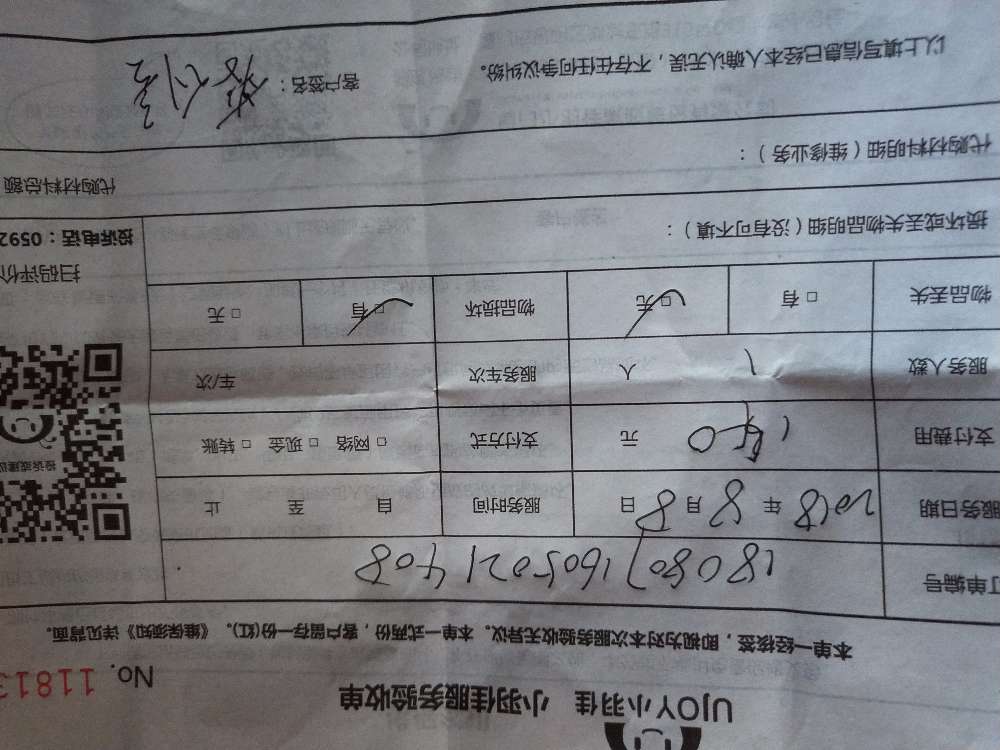 UJOY小羽佳 小羽佳服务验收单
No. 11813
本单一经核签，即视为对本次服务验收无异议。本单一式两份，客户留存一份(红)。《维保须知》详见背面。
订单编号 180807160502 1408
服务日期 2018 年 8 月 8 日 服务时间 自 至 止
支付费用 150 元 支付方式 □ 网络 □ 现金 □ 转账
投诉或建议
服务人数 1 人 服务车次 车/次
物品丢失 □ 有 □ 无 物品损坏 □ 有 □ 无
扫码评价
投诉电话：0592
损坏或丢失物品明细（没有可不填）：
代购材料明细（维修业务）：
代购材料总额
以上填写信息已经本人确认无误，不存在任何争议纠纷。
客户签名：